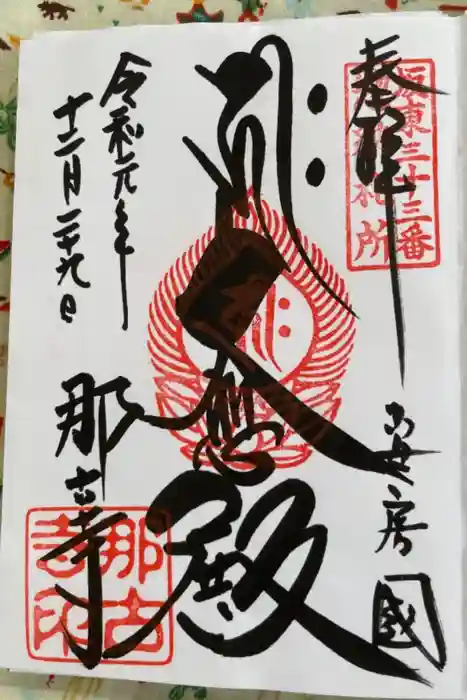 奉拝
坂東三十三番
結願札所
房國
大悲殿
令和元年
十二月二十九日
那古寺
那古
寺印